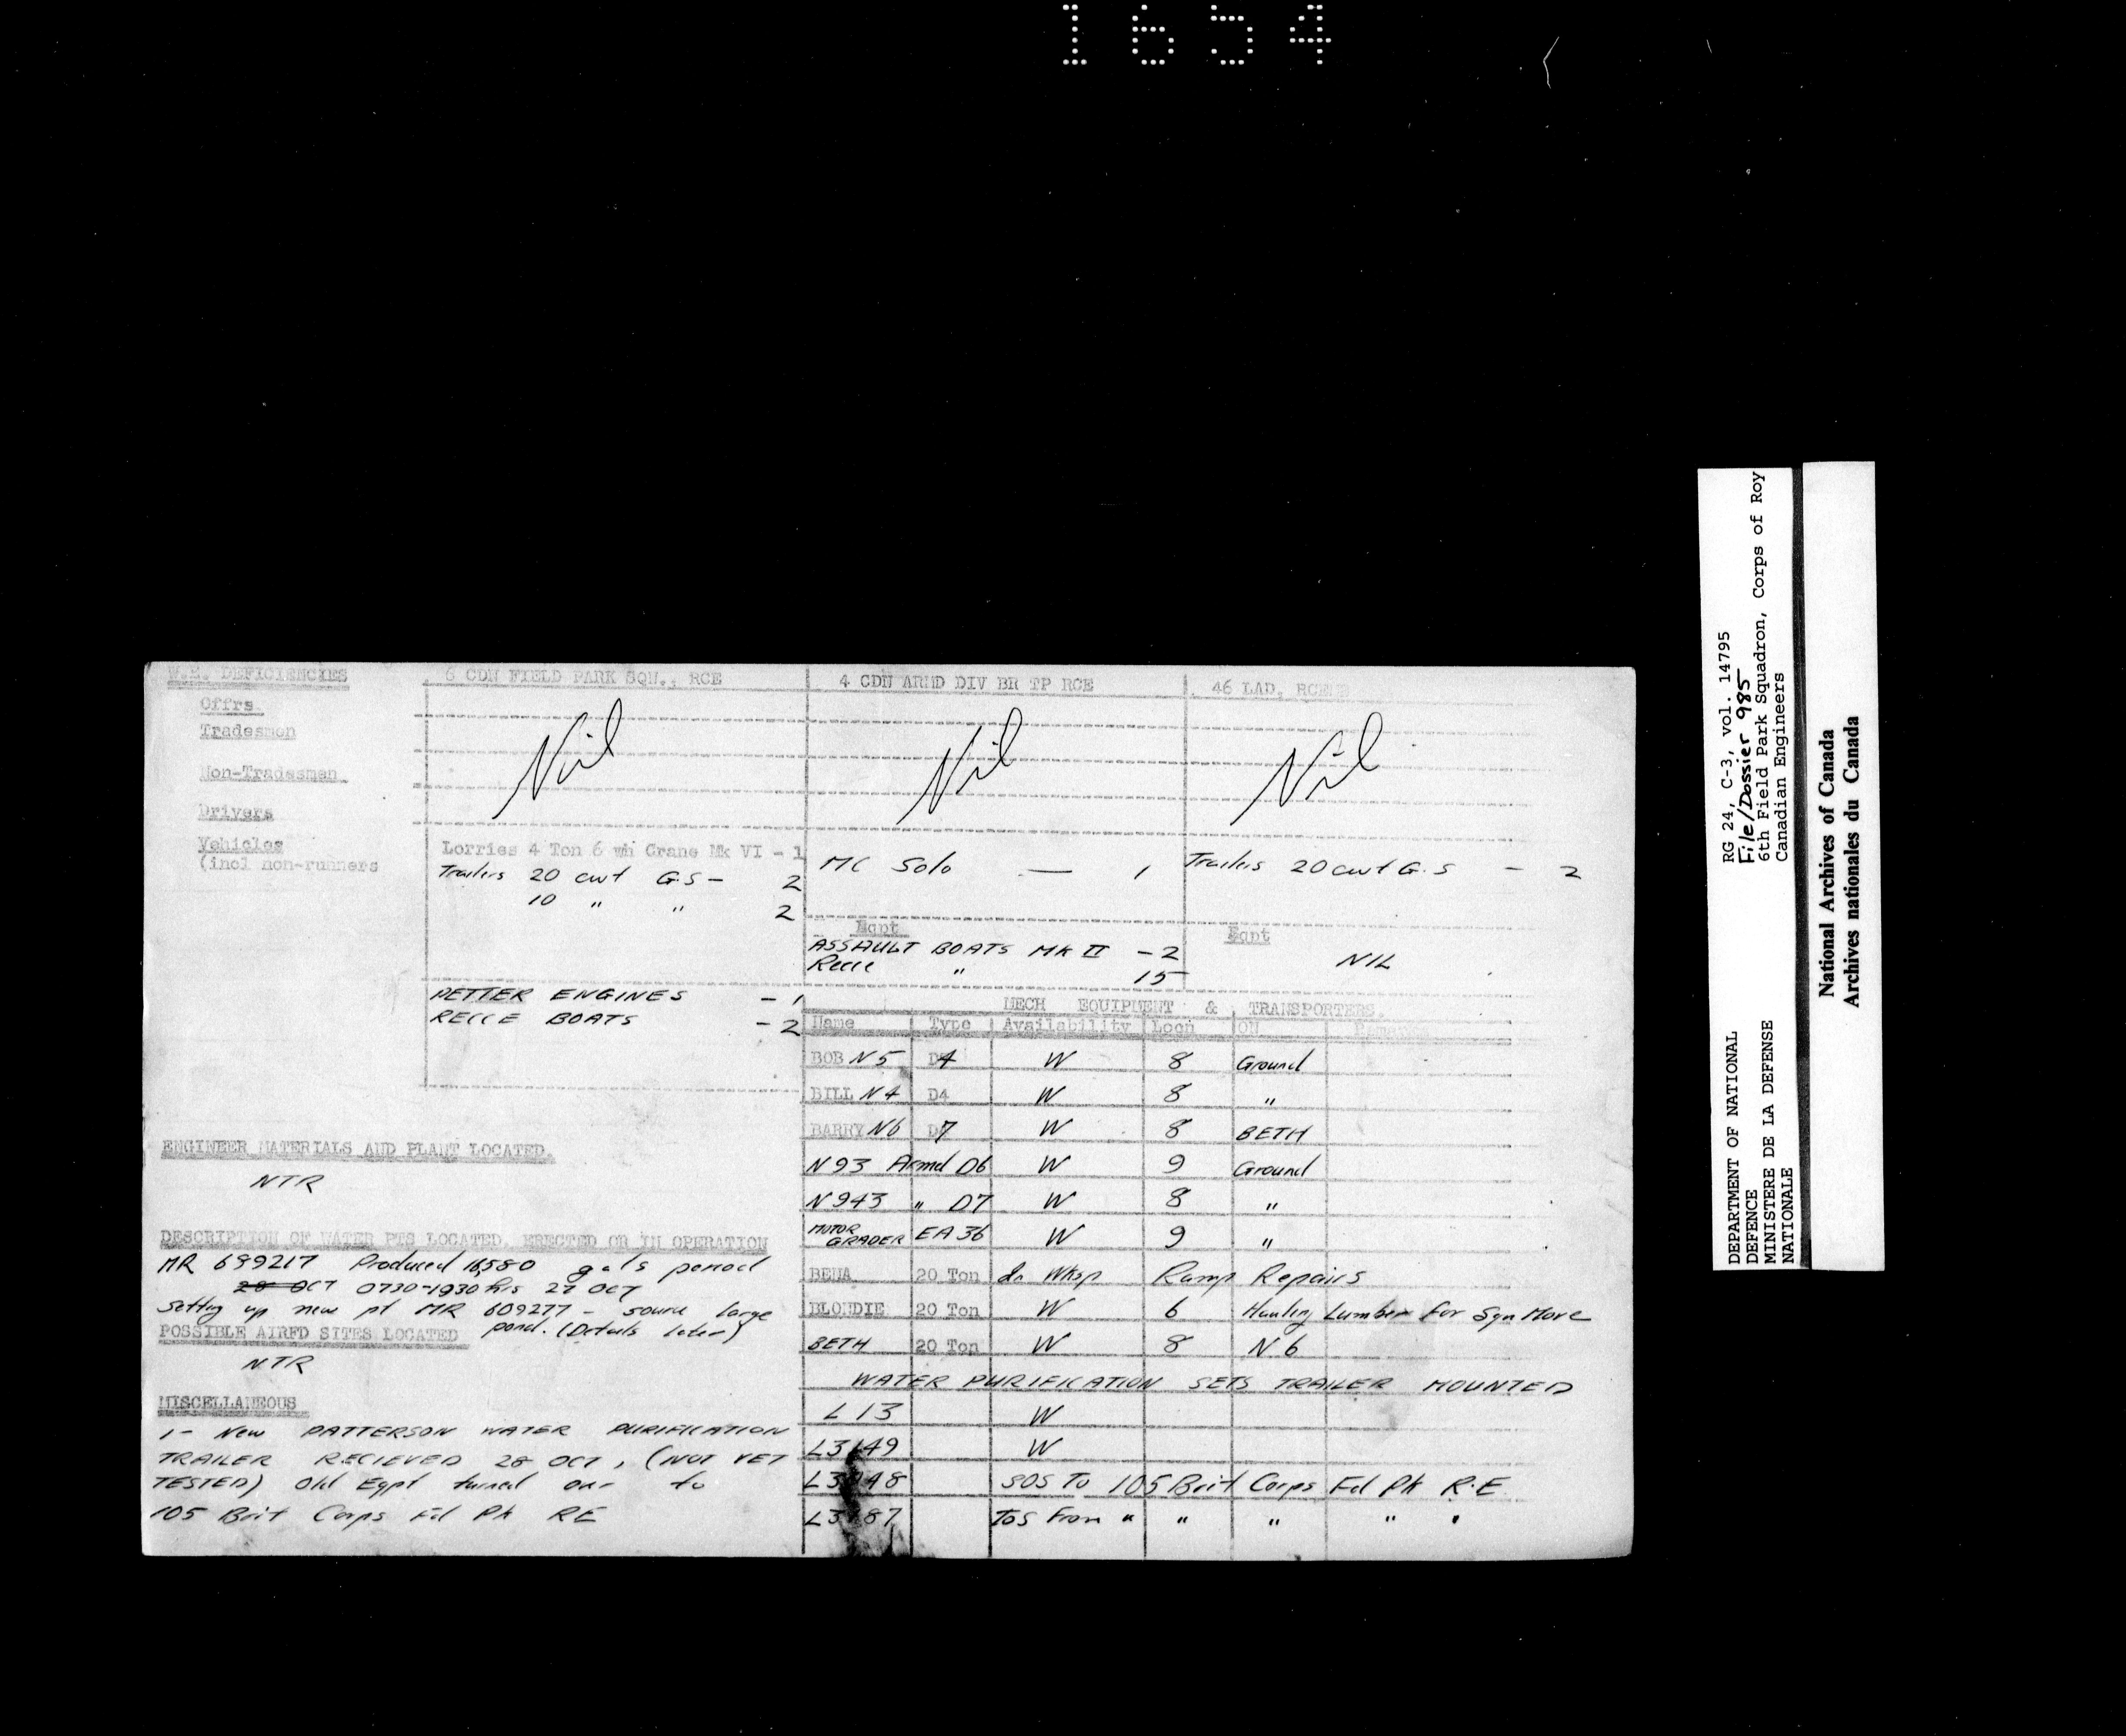 1654
W.E. DEFICIENCIES
Offrs
Tradesmen
Non-Tradesmen
Drivers
Vehicles
(incl non-runners
6 CDN FIELD PARK SQN., RCE
Nil
Lorries 4 Ton 6 wh Crane Mk VI - 1
Trailers 20 cwt G.S - 2
10 " " 2
PETTER ENGINES - 1
RECCE BOATS - 2
4 CDN ARMD DIV BR TP RCE
Nil
MC Solo — 1
Eqpt
ASSAULT BOATS MK II - 2
Recce " 15
46 LAD, RCEME
Nil
Trailers 20 cwt G.S - 2
Eqpt
NIL
ENGINEER MATERIALS AND PLANT LOCATED.
NTR
DESCRIPTION OF WATER PTS LOCATED, ERECTED OR IN OPERATION
MR 699217 Produced 16,580 gals period
28 OCT 0730-1930 hrs 27 OCT
Setting up new pt MR 609277 - source large
pond. (Details later)
POSSIBLE AIRFD SITES LOCATED
NTR
MISCELLANEOUS
1- New PATTERSON WATER PURIFICATION
TRAILER RECIEVED 28 OCT, (NOT YET
TESTED) Old Eqpt turned over to
105 Brit Corps Fd Pk RE
MECH EQUIPMENT & TRANSPORTERS.
Name Type Availability Locn ON Remarks
BOB N5 D4 W 8 Ground
BILL N4 D4 W 8 "
BARRY N6 D7 W 8 BETH
N93 Armd D6 W 9 Ground
N943 " D7 W 8 "
MOTOR GRADER EA 36 W 9 "
BENA 20 Ton In Wksp Ramp Repairs
BLONDIE 20 Ton W 6 Hauling Lumber for Sqn Move
BETH 20 Ton W 8 N6
WATER PURIFICATION SETS TRAILER MOUNTED
L 13 W
L3149 W
L3148 SOS To 105 Brit Corps Fd Pk R.E
L3187 TOS From " " " " "
RG 24, C-3, vol. 14795
File/Dossier 985
6th Field Park Squadron, Corps of Roy
Canadian Engineers
DEPARTMENT OF NATIONAL
DEFENCE
MINISTERE DE LA DEFENSE
NATIONALE
National Archives of Canada
Archives nationales du Canada